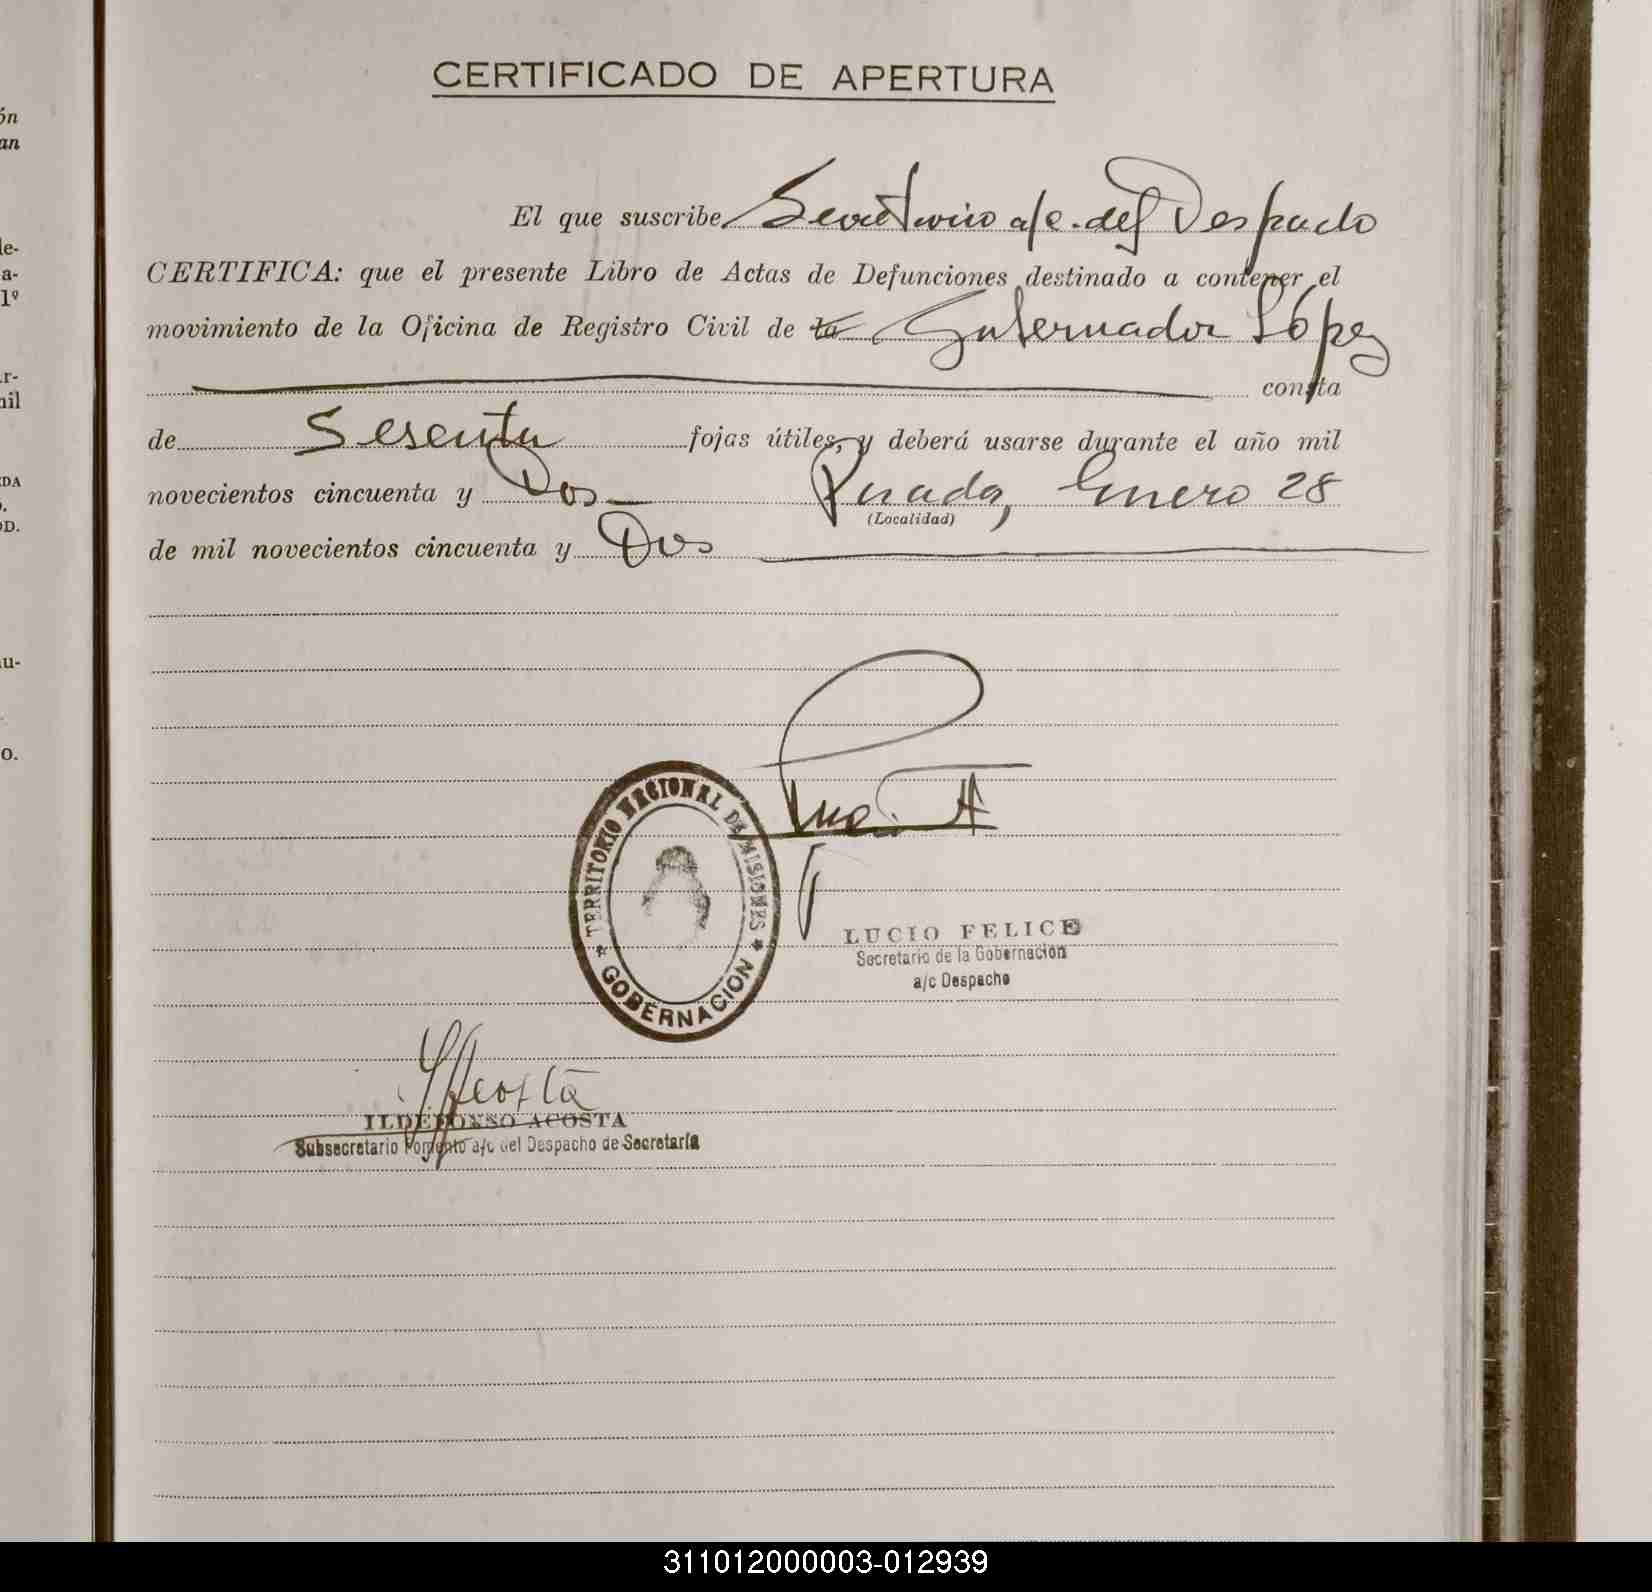 CERTIFICADO DE APERTURA
El que suscribe Secretario a/c. del Despacho
CERTIFICA: que el presente Libro de Actas de Defunciones destinado a contener el
movimiento de la Oficina de Registro Civil de la Gobernador López
consta
de Sesenta fojas útiles, y deberá usarse durante el año mil
novecientos cincuenta y Dos Posadas, Enero 28
(Localidad)
de mil novecientos cincuenta y Dos
TERRITORIO NACIONAL DE MISIONES
* GOBERNACION *
LUCIO FELICE
Secretario de la Gobernación
a/c Despacho
Acosta
ILDEFONSO ACOSTA
Subsecretario Fomento a/c del Despacho de Secretaría
ón
an
le-
a-
1º
r-
nil
DA
OD.
u-
o.
311012000003-012939